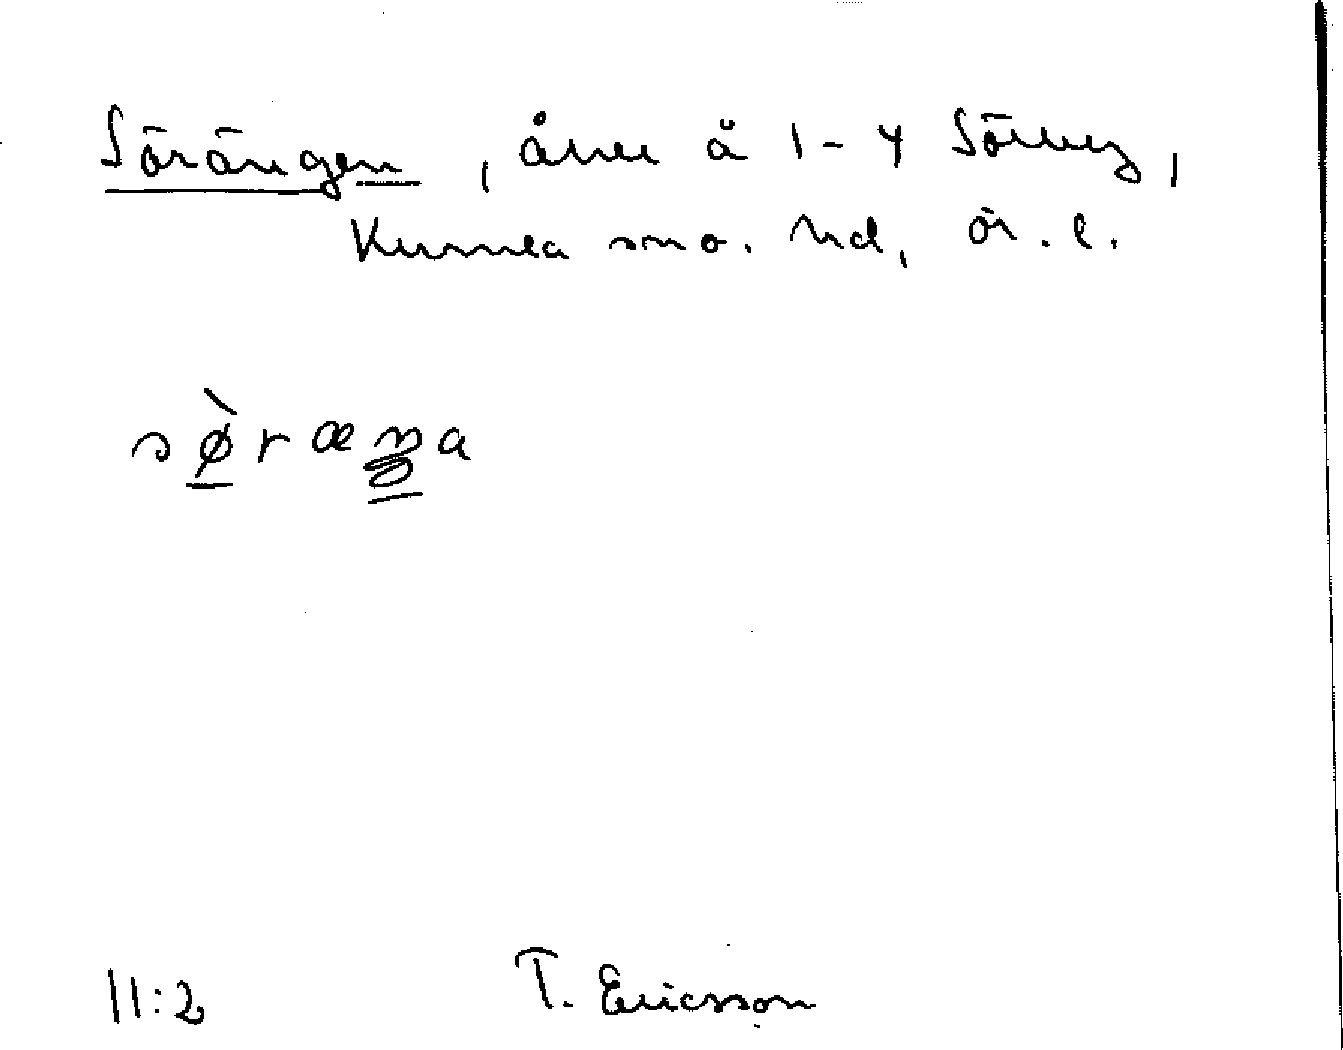 Sörängen, åker å 1-4 Sörby,
Kumla sn o. hd, Ör. l.
sø̀ræŋa
11:2 T. Ericsson